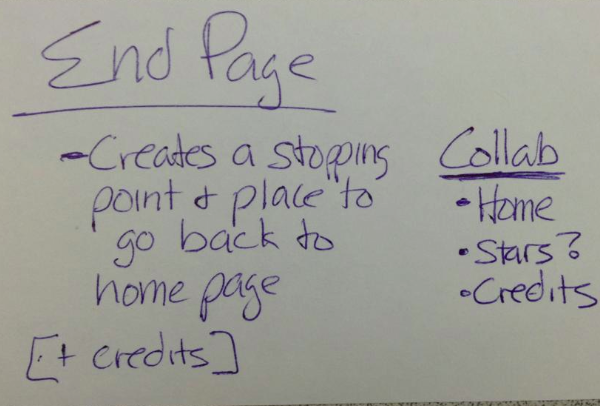 End Page
- Creates a stopping
point & place to
go back to
home page
[·+ credits]
Collab
• Home
• Stars?
• Credits